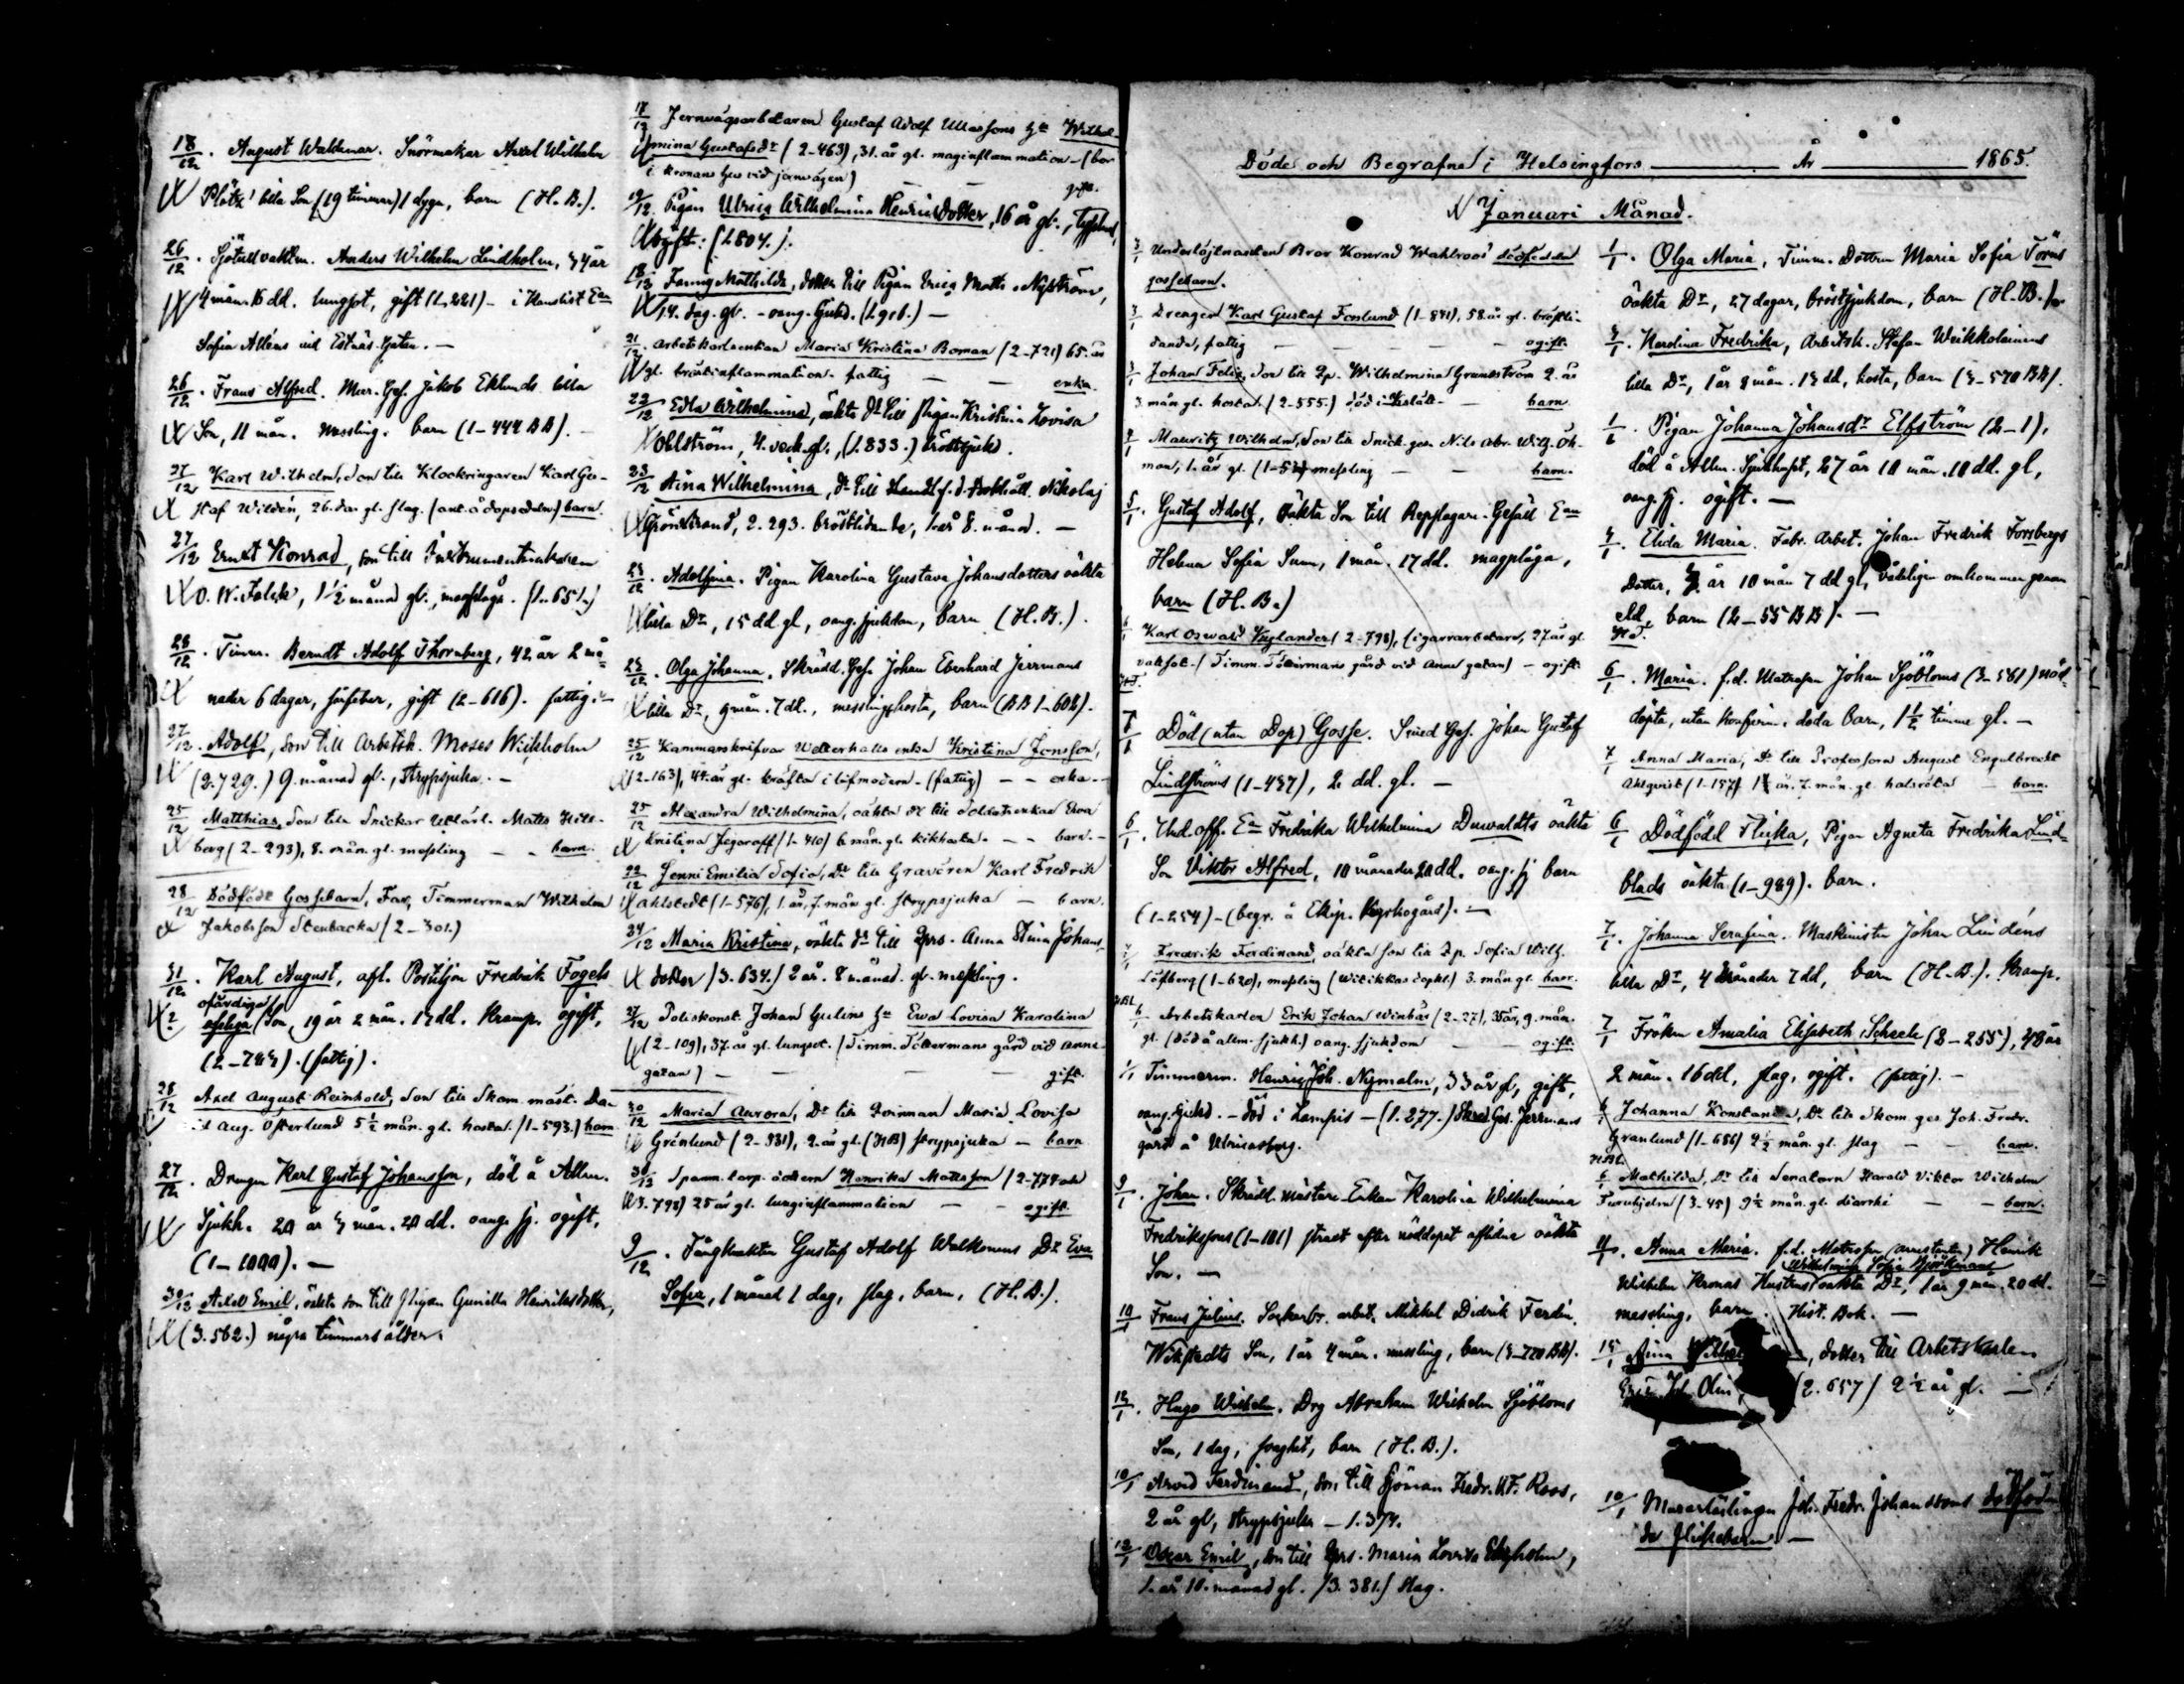 18/12. August Waldemar. Snörmakar Axel Wilhelm
lilla Son (19 timmar) 1 dygn, barn (H. B.).
26/12. Anders Wilhelm Lindholm,
4 mån. 16 dd. lungsot, gift (1.221) - i
Sofia
26/12. Frans Alfred. Mur. Ges. Jakob Eklunds lilla
Son, 11 mån. Messling. barn (1-444 BB).
27/12 Karl Wilhelm, Son till Klockringaren Karl Gu-
staf Wildén, 26. da. gl. slag. barn.
27/12 Ernst Konrad, son till Instrumentmakaren
O. W. Falck, 1 1/2 månad gl., magplåga. (1.651.)
28/12. Timm. Berndt Adolf Thornberg, 42 år 2 må-
nader 6 dagar, gift (2-616). fattig.
27/12. Adolf, Son till Arbetsk. Moses Wickholm
(2.729.) 9. månad gl., strypsjuka. -
25/12 Matthias, Son till Snickar Matts
berg (2-293), 8. mån. gl. messling - - barn.
28/12 Dödfödt Gossebarn, Far, Timmerman Wilhelm
Jakobsson Stenbacka (2-301.)
31/12. Karl August, afl. Postiljon Fredrik Fogels
ofärdiga
Son, 19 år 2 mån. 17 dd. Kramp. ogift,
(fattig).
28/12 Axel August Reinhold, Son till Skom. mäst. Da-
Aug. Österlund 5 1/2 mån. gl. hosta. (1-593.) barn
27/12. Drengen Karl Gustaf Johansson, död å Allm.
Sjukh. 20 år mån. 20 dd. oang. sj. ogift,
(1-1000). -
30/12 Axel Emil, oäkta son till Pigan Gunilla Henriksdotter,
(3.562.) några timmars ålder.
18/12 Jernvägsarbetaren Gustaf Adolf Ulassons Hu Wilhel-
mina Gustafsdr (2-463), 31. år gl. maginflammation - (bor
i Kronans hus vid jernvägen) - - gift.
19/12 Pigan Ulrica Wilhelmina Henricsdotter, 16 år gl.,
ogift. (1.804.).
18/12 Fanny Mathilda, dotter till Pigan Erica Matts. Nyström,
14. dag. gl. - oang. sjukd. -
21/12. Arbetskarlsenkan Maria Kristina Roman (2-721) 65. år
gl. bröstinflammation. fattig - - enka.
22/12 Edla Wilhelmina, oäkta dr till Pigan Kristina Lovisa
Ohlström, 4. veck. gl., (1.833.) bröstsjukd.
23/12 Aina Wilhelmina, dr till Nikolaj
Grönstrand, 2.293. bröstlidande, 1. år 8. månad. -
23/12. Adolfina. Pigan Karolina Gustava Johansdotters oäkta
lilla Dr, 15 dd gl, oang. sjukdom, barn (H. B.).
25/12. Olga Johanna. Skrädd. Ges. Johan Eberhard Jerrmans
lilla Dr, 9 mån. 7 dd., messlingshosta, barn (BB 1-602).
25/12 Kammarskrifvar Wetterhalls enka Kristina Jonsson,
(2-163), 44. år gl. kräfta i lifmodern - (fattig) - - enka -
25/12 Alexandra Wilhelmina, oäkta dr till Soldatenkan Ewa
Kristina Jegoroff (1-410) 6 mån. gl. kikhosta. - - barn. -
22/12 Jenni Emilia Sofia, Dr till Gravören Karl Fredrik
Ahlstedt (1-576), 1. år, 7. mån gl. strypsjuka - barn.
24/12 Maria Kristina, oäkta dr till Qprs. Anna Stina Johans-
dotter (3.634.) 2 år. 8 månad. gl. messling.
27/12 Poliskonst. Johan Gulins Hu Ewa Lovisa Karolina
(2-109), 37. år gl. lungsot. (Timm. Töttermans gård vid Anne-
gatan) - - - gift.
30/12 Maria Aurora, Dr till Qvinnan Maria Lovisa
Grönlund (2-831), 2. år gl. (HB) strypsjuka - barn
30/12 Henrika Mattsson (2-774 och
3.798) 25 år gl. lunginflammation - - ogift
9/12. Gustaf Adolf Walkonens Dr Eva
Sofia, 1 månad 1 dag, slag, barn, (H. B.).
Döde och Begrafne i Helsingfors År 1865.
Januari Månad.
Underlöjtnanten Bror Konrad Wahlroos' dödfödda
gossebarn.
3/1 Drengen Karl Gustaf Forslund (1-891), 58. år gl. bröstli-
dande, fattig - - - ogift.
Johan Felix, Son till Qp. Wilhelmina Grundström 2. år
3 mån gl. hosta. (2-555.) - barn
Mauritz Wilhelm, Son till Snick. ges. Nils Abr. Wilh. Öh-
man, 1. år gl. messling - - barn.
5/1. Gustaf Adolf, oäkta Son till Repslagare-Gesäll Ean
Helena Sofia Sunn, 1 mån. 17 dd. magplåga,
barn (H. B.)
Karl Oswald Nylander (2-798), Cigarrarbetare, 27. år gl.
(Timm. Töttermans gård vid Anne gatan) - ogift
Död (utan Dop) Gosse. Smed Ges. Johan Gustaf
Lindströms (1-487), 2 dd. gl. -
6/1. Und. off. Ea Fredrika Wilhelmina Duwaldts oäkta
Son Viktor Alfred, 10 månader 20 dd. oang. sj barn
(1-254) - (begr. å Ekip. Kyrkogård). -
Fredrik Ferdinand, oäkta son till Qp. Sofia Wilh.
Löfberg (1-620), messling 3. mån gl. barn.
6/1 Arbetskarlen Erik Johan Winbäs (2-27), 35 år, 9. mån.
gl. (död å allm. sjukh.) oang. sjukdom - ogift.
Timmerm. Henric Joh. Nymalm, 33 år gl, gift,
oang. sjukd. - död i Lampis - (1.277.) Skräd Ges. Jerrmans
gård å Ulricasborg.
9/1. Johan. Skrädd. mästare Enkan Karolina Wilhelmina
Fredrikssons (1-101) straxt efter nöddopet aflidne oäkta
Son. -
10/1 Frans Julius. Sockerbr. arbet. Mikkel Didrik Ferdin.
Wikstedts Son, 1 år 4 mån. messling, barn
12/1. Hugo Wilhelm. Drg Abraham Wilhelm Sjöbloms
Son, 1 dag, svaghet, barn (H. B.).
10/1 Arvid Ferdinand, Son till Sjöman Fredr. Roos,
2 år gl, strypsjuka - 1.374.
12/1 Oscar Emil, son till Qprs. Maria Lovisa Ekholm,
1. år 10. månad gl. (3.381.) slag.
1/1. Olga Maria, Timm. Dottern Maria Sofia Törns
oäkta Dr, 27 dagar, bröstsjukdom, barn (H. B.)
Karolina Fredrika, Arbetsk. Stefan Weikkolainens
lilla Dr, 1 år 8 mån. 13 dd, hosta, barn
1/1. Pigan Johanna Johansdr Elfström (2-1),
död å Allm. Sjukhuset, 27 år 10 mån. 10 dd. gl,
oang. sj. ogift. -
Elida Maria. Fabr. Arbet. Johan Fredrik Forsbergs
Dotter, år 10 mån 7 dd gl, vådeligen omkommen genom
eld, barn (2-55 BB). -
6/1. Maria. f.d. Matrosen Johan Sjöbloms (3-561) nöd-
döpta, utan Konfirm. döda barn, 1 1/2 timme gl. -
7/1 Anna Maria, Dr till Professorn August Engelbrecht
Ahlqvist (1-157) år. 7. mån. gl. halsröta - barn.
6/1 Dödfödd Flicka, Pigan Agneta Fredrika Lind-
blads oäkta (1-989). barn.
7/1. Johanna Serafina. Maskinisten Johan Lindéns
lilla Dr, 4 månader 7 dd, barn (H. B.). Kramp.
7/1 Fröken Amalia Elisabeth Scheele (2-255), 48 år
2 mån. 16 dd, slag, ogift. (fattig). -
Johanna Konstantia, Dr till Skom. ges. Joh. Fredr.
Granlund (1-686) 2 1/2 mån. gl. slag - - barn.
6/1 Mathilda, Dr till Senatorn Harald Viktor Wilhelm
Furuhjelm (3-45) 9 1/2 mån. gl. diarrhé - - barn.
Anna Maria. f.d. Matrosen (arrestanten) Henrik
Wilhelmina Sofia Björkmans
Wilhelm Kromas Hustrus oäkta Dr, 1 år 9 mån. 20 dd.
messling, barn. Hist. Bok. -
15/1 Aina, dotter till Arbetskarlen
(2.657) 2 1/2 år gl. -
10/1 Murarlärlingen Joh. Fredr. Johanssons dödföd-
da flickebarn. -